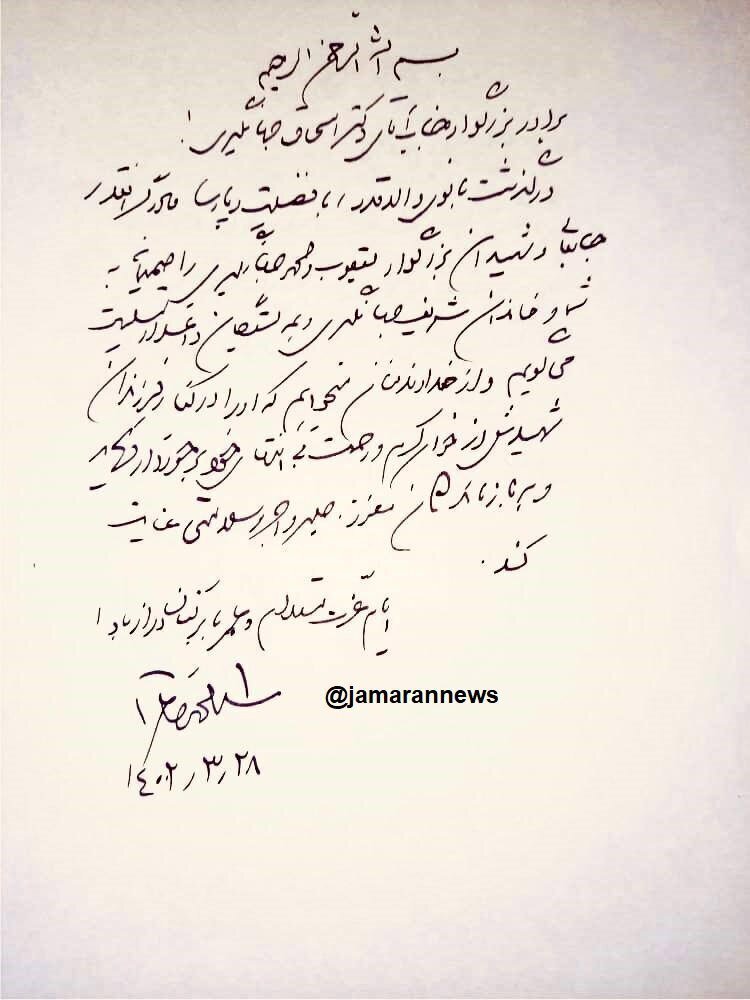 بسم الله الرحمن الرحیم
برادر بزرگوار جناب آقای دکتر اسحاق جهانگیری!
درگذشت بانوی والاقدر، بافضیلت و پارسا مادر گرانقدر
جنابعالی و شهیدان بزرگوار یعقوب و محمد جهانگیری را صمیمانه به
شما و خاندان شریف جهانگیری و همه بستگان داغدار تسلیت
می‌گویم و از خداوند منان میخواهم که او را در کنار فرزندان
شهیدش از خوان کرم و رحمت بی انتهای خود برخوردار نماید
و به بازماندگان معزز، صبر و اجر و سلامتی عنایت
کند.
ایام عزت مستدام و عمر با برکتتان دراز باد!
سید محمد خاتمی
۱۴۰۲/۳/۲۸
@jamarannews